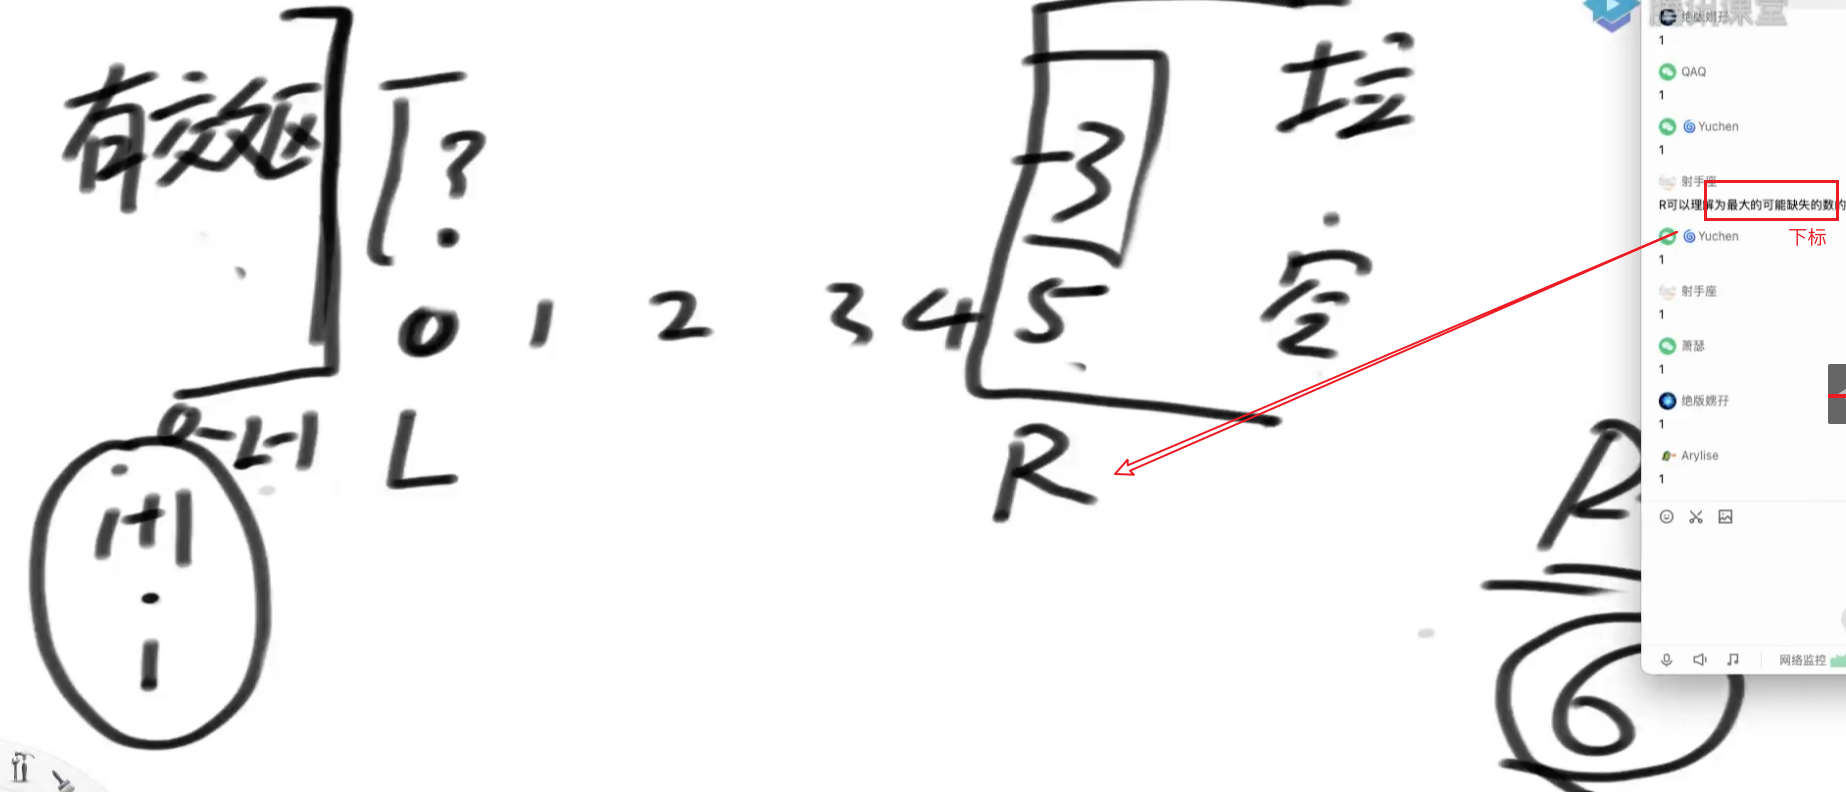 有效区
?
0 1 2 3 4 5
-3
垃
空
0~L-1
L
R
i
i+1
1
R
6
腾讯课堂
绝版娚孖
1
QAQ
1
Yuchen
1
射手座
R可以理解为最大的可能缺失的数的
下标
Yuchen
1
射手座
1
萧瑟
1
绝版娚孖
1
Arylise
1
网络监控